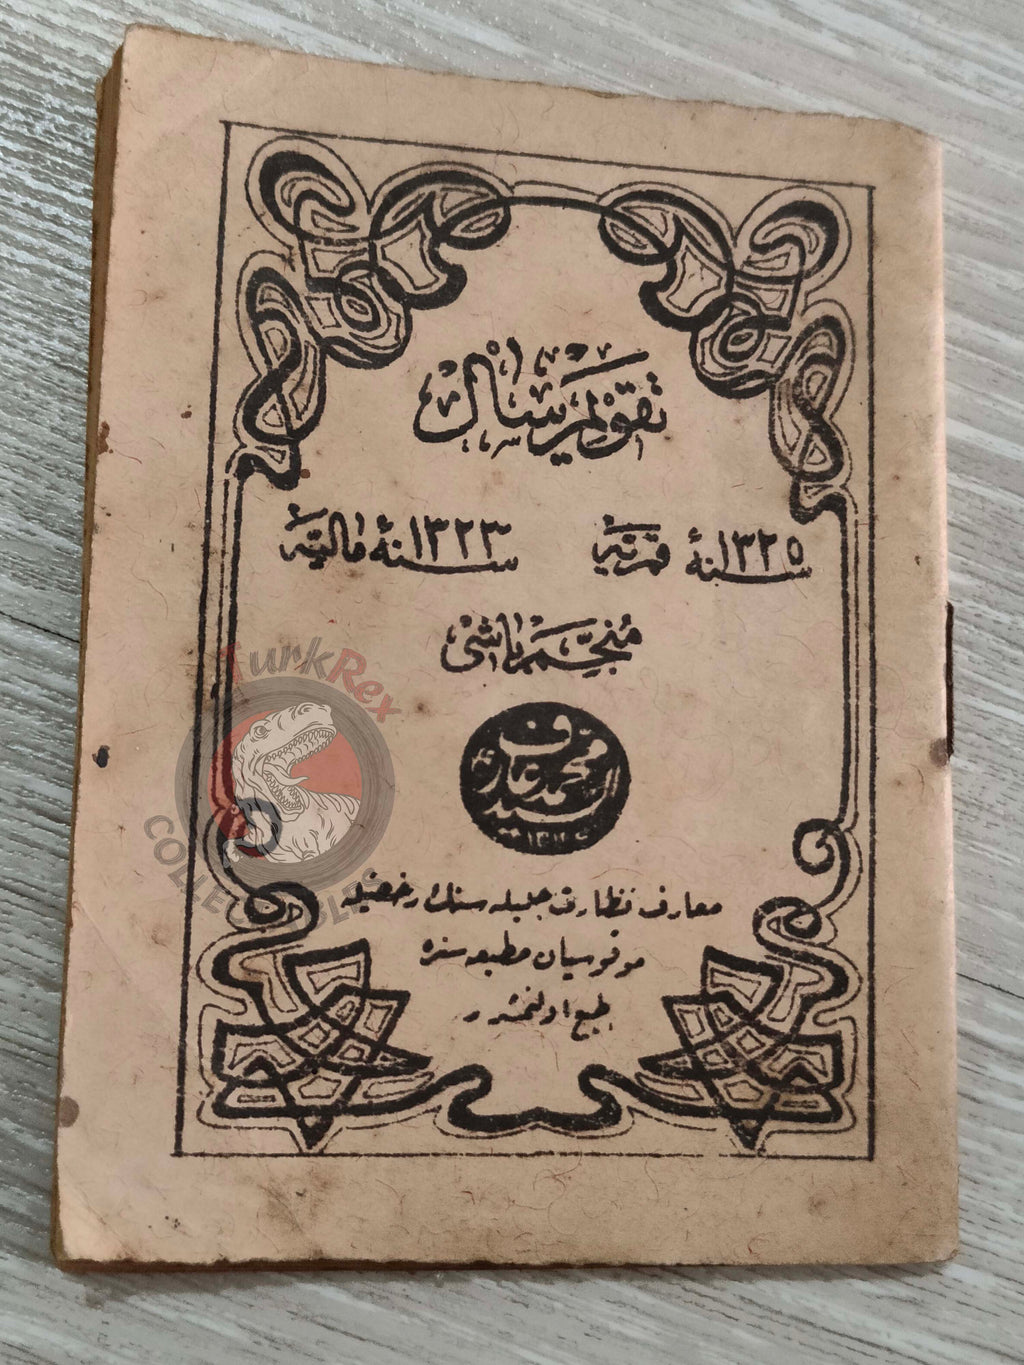 تقويم سال
سنهٔ ١٣٢٥ قمريه
سنهٔ ١٣٢٣ ماليه
منجم باشی
السيد محمد عارف
معارف نظارت جليله سنك رخصتيله
موقوسيان مطبعه سنده
طبع اولنمشدر
TurkRex
COLLECTIBLES